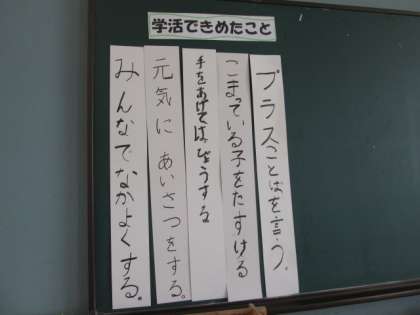 学活できめたこと
プラスことばを言う。
こまっている子をたすける
手をあげてはっぴょうする
元気に あいさつをする。
みんなでなかよくする。